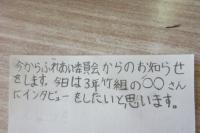 今からふれあい委員会からのお知らせ
をします。今日は3年竹組の○○さん
にインタビューをしたいと思います。